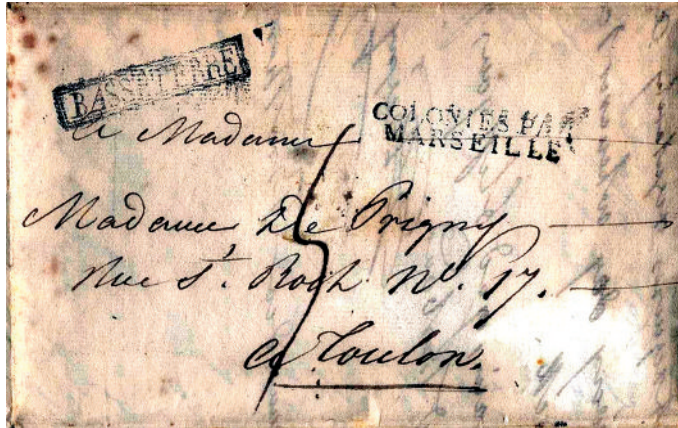 BASSE-TERRE
COLONIES PAR
MARSEILLE
A Madame
Madame De Prigny
Rue St. Roch. No. 17.
a Toulon.
5